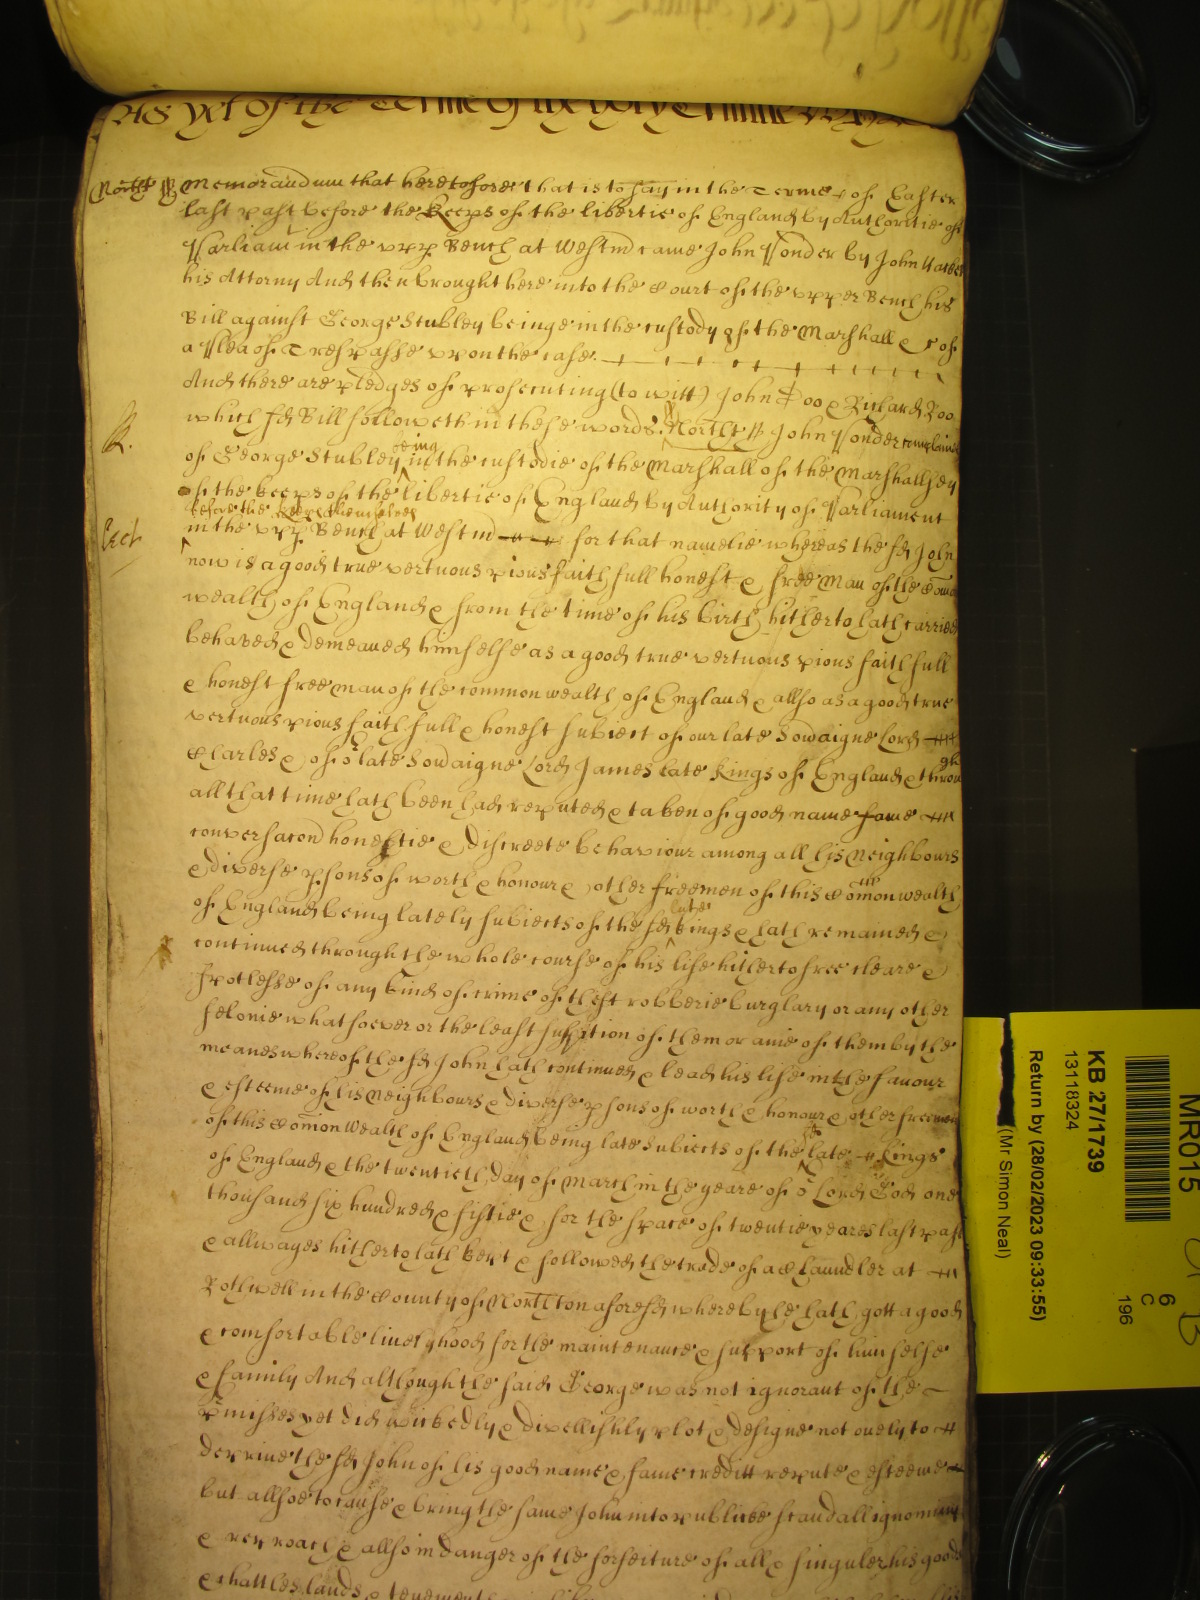 As yet of the Terme of the holy Trinitie
North't ss Memorandum that heretofore that is to say in the Terme of Easter
last past before the Keeps of the libertie of England by Authoritie of
Parliam in the upp Bench at Westm came John Ponder by John
his Attorny And then brought here into the Court of the upper Bench his
Bill against George Stubley beinge in the custody of the Marshall &c of
a Plea of Trespasse upon the case
And there are pledges of prosecuting (to witt) John Doo & Richard Roo
which sd Bill followeth in these words. North't ss John Ponder complaines
R.
of George Stubley being in the custodie of the Marshall of the Marshallsey
of the keeps of the libertie of England by Authority of Parliament
before the keeps themselves
in the upp Bench at Westm for that namelie whereas the sd John
now is a good true vertuous pious faithfull honest & free man of the Comon
wealth of England & from the time of his birth hitherto hath carried
behaved & demeaned himselfe as a good true vertuous pious faithfull
& honest free man of the common wealth of England & allso as a good true
vertuous pious faithfull & honest subiect of our late Sovaigne Lord
Charles & of or late Sovaigne Lord James late Kings of England & through
all that time hath been had reputed & taken of good name fame
conversacon honestie & discreete behaviour among all his Neighbours
& diverse psons of worth & honour & other freemen of this Comonwealth
of England being lately subiects of the sd late kings & hath remained &
continued through the whole course of his life hitherto free cleare &
spotlesse of any kind of crime of theft robberie burglary or any other
felonie whatsoever or the least suspition of them or anie of them by the
meanes whereof the sd John hath continued & lead his life in the favour
& esteeme of his Neighbours & diverse psons of worth & honour & other freemen
of this Comon Wealth of England being late Subiects of the sd late Kings
of England & the twentieth day of March in the yeare of or Lord God one
thousand six hundred & fiftie & for the space of twentie yeares last past
& allwayes hitherto hath kept & followed the trade of a Chaundler at
Rothwell in the County of North'ton aforesd whereby he hath gott a good
& comfortable livelyhood for the maintenance & support of himselfe
& family And althought the said George was not ignorant of the
pmisses yet did wickedly & divellishly plot & designe not onely to
deprive the sd John of his good name & fame creditt repute & esteeme
but allsoe to cause & bring the same John into publicke scandall ignominy
& reproach & allso in danger of the forfeiture of all & singuler his goods
& chattles lands & tenements
MR015
6
C
196
KB 27/1739
13118324
Return by (28/02/2023 09:33:55)
(Mr Simon Neal)